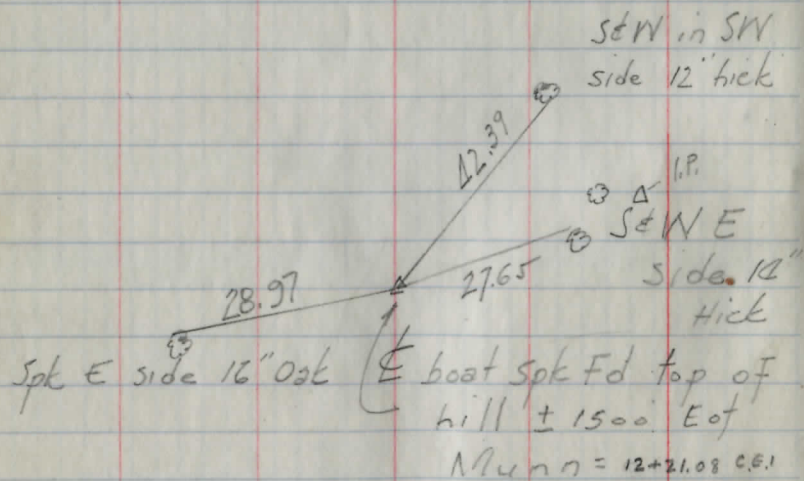 S&W in SW
side 12" hick
12.39
I.P.
S&W E
side 14"
Hick
27.65
28.97
Spk E side 16" Oak
℄ boat spk Fd top of
hill ± 1500 E of
Munn = 12+21.08 C.E.I